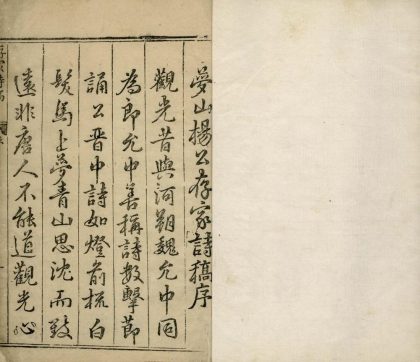 夢山楊公存家詩稿序
觀光昔與河朔魏允中同
為郎允中善稱詩數擊節
誦公晉中詩如燈前梳白
髮馬上夢青山思沈而致
遠非唐人不能道觀光心